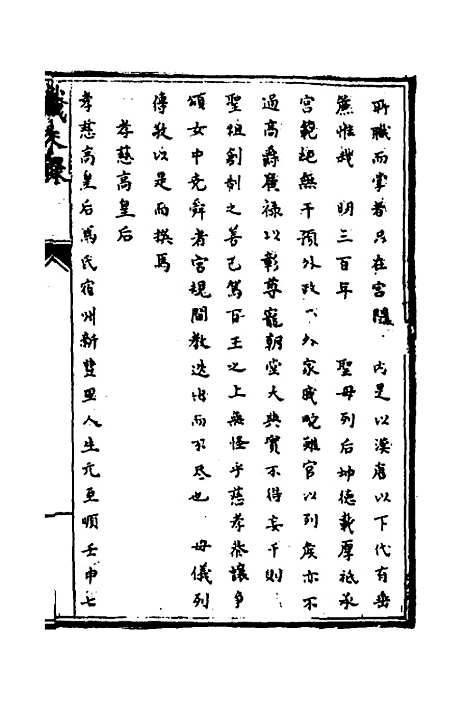 所職而掌者只在宮闈　內是以漢唐以下代有垂
簾惟我　明三百年　聖母列后坤德載厚祗承
宮範絕無干預外政　外家戚畹雖官以列侯亦不
過高爵廣祿以彰尊寵朝堂大典實不得妄干則
聖祖創制之善已駕百王之上無怪乎慈孝恭讓爭
頌女中堯舜者宮規閫教迭出而不尽也　母儀列
傳敬以是而撰焉
孝慈高皇后
孝慈高皇后馬氏宿州新豐里人生元至順壬申七
識未錄